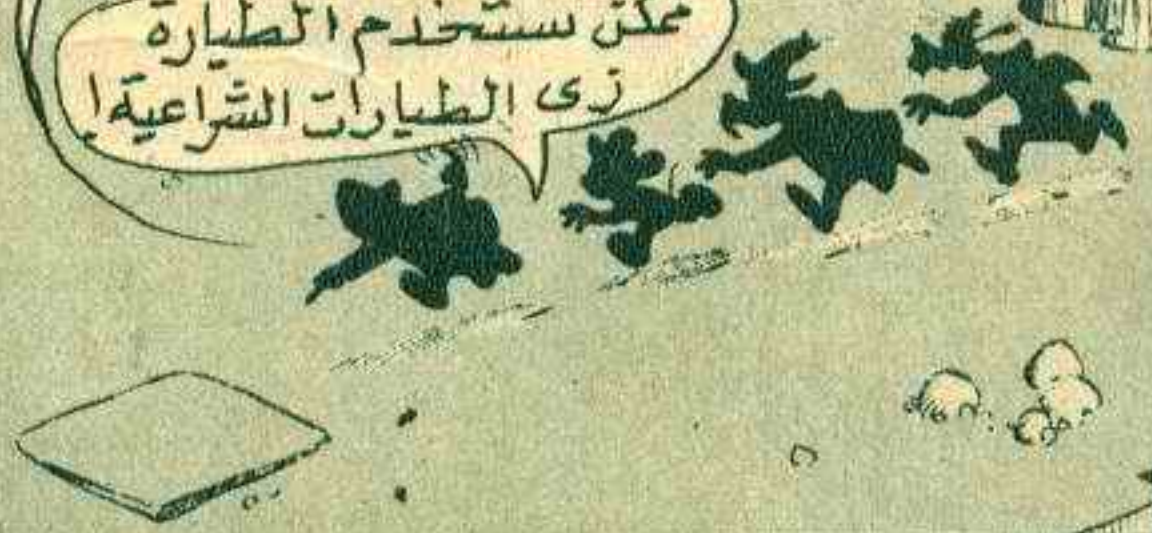 ممكن نستخدم الطيارة
زى الطيارات الشراعية!